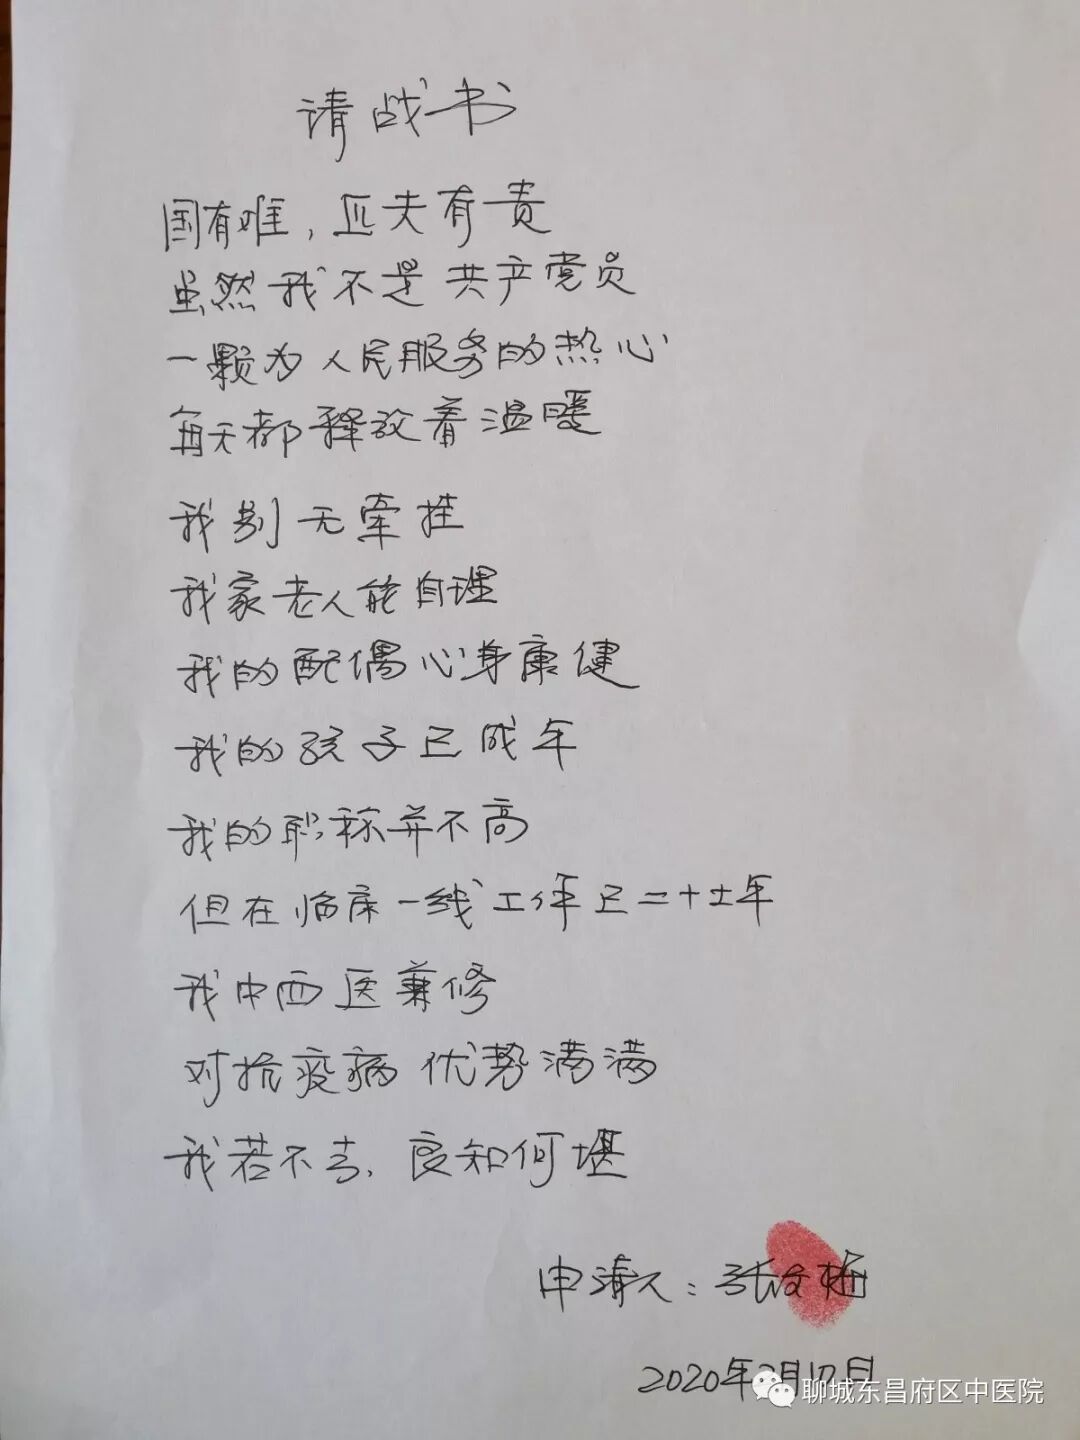 请战书
国有难，匹夫有责
虽然我不是共产党员
一颗为人民服务的热心
每天都释放着温暖
我别无牵挂
我家老人能自理
我的配偶心身康健
我的孩子已成年
我的职称并不高
但在临床一线工作已二十年
我中西医兼修
对抗疫病优势满满
我若不去，良知何堪
申请人：张 梅
2020年2月17日
聊城东昌府区中医院